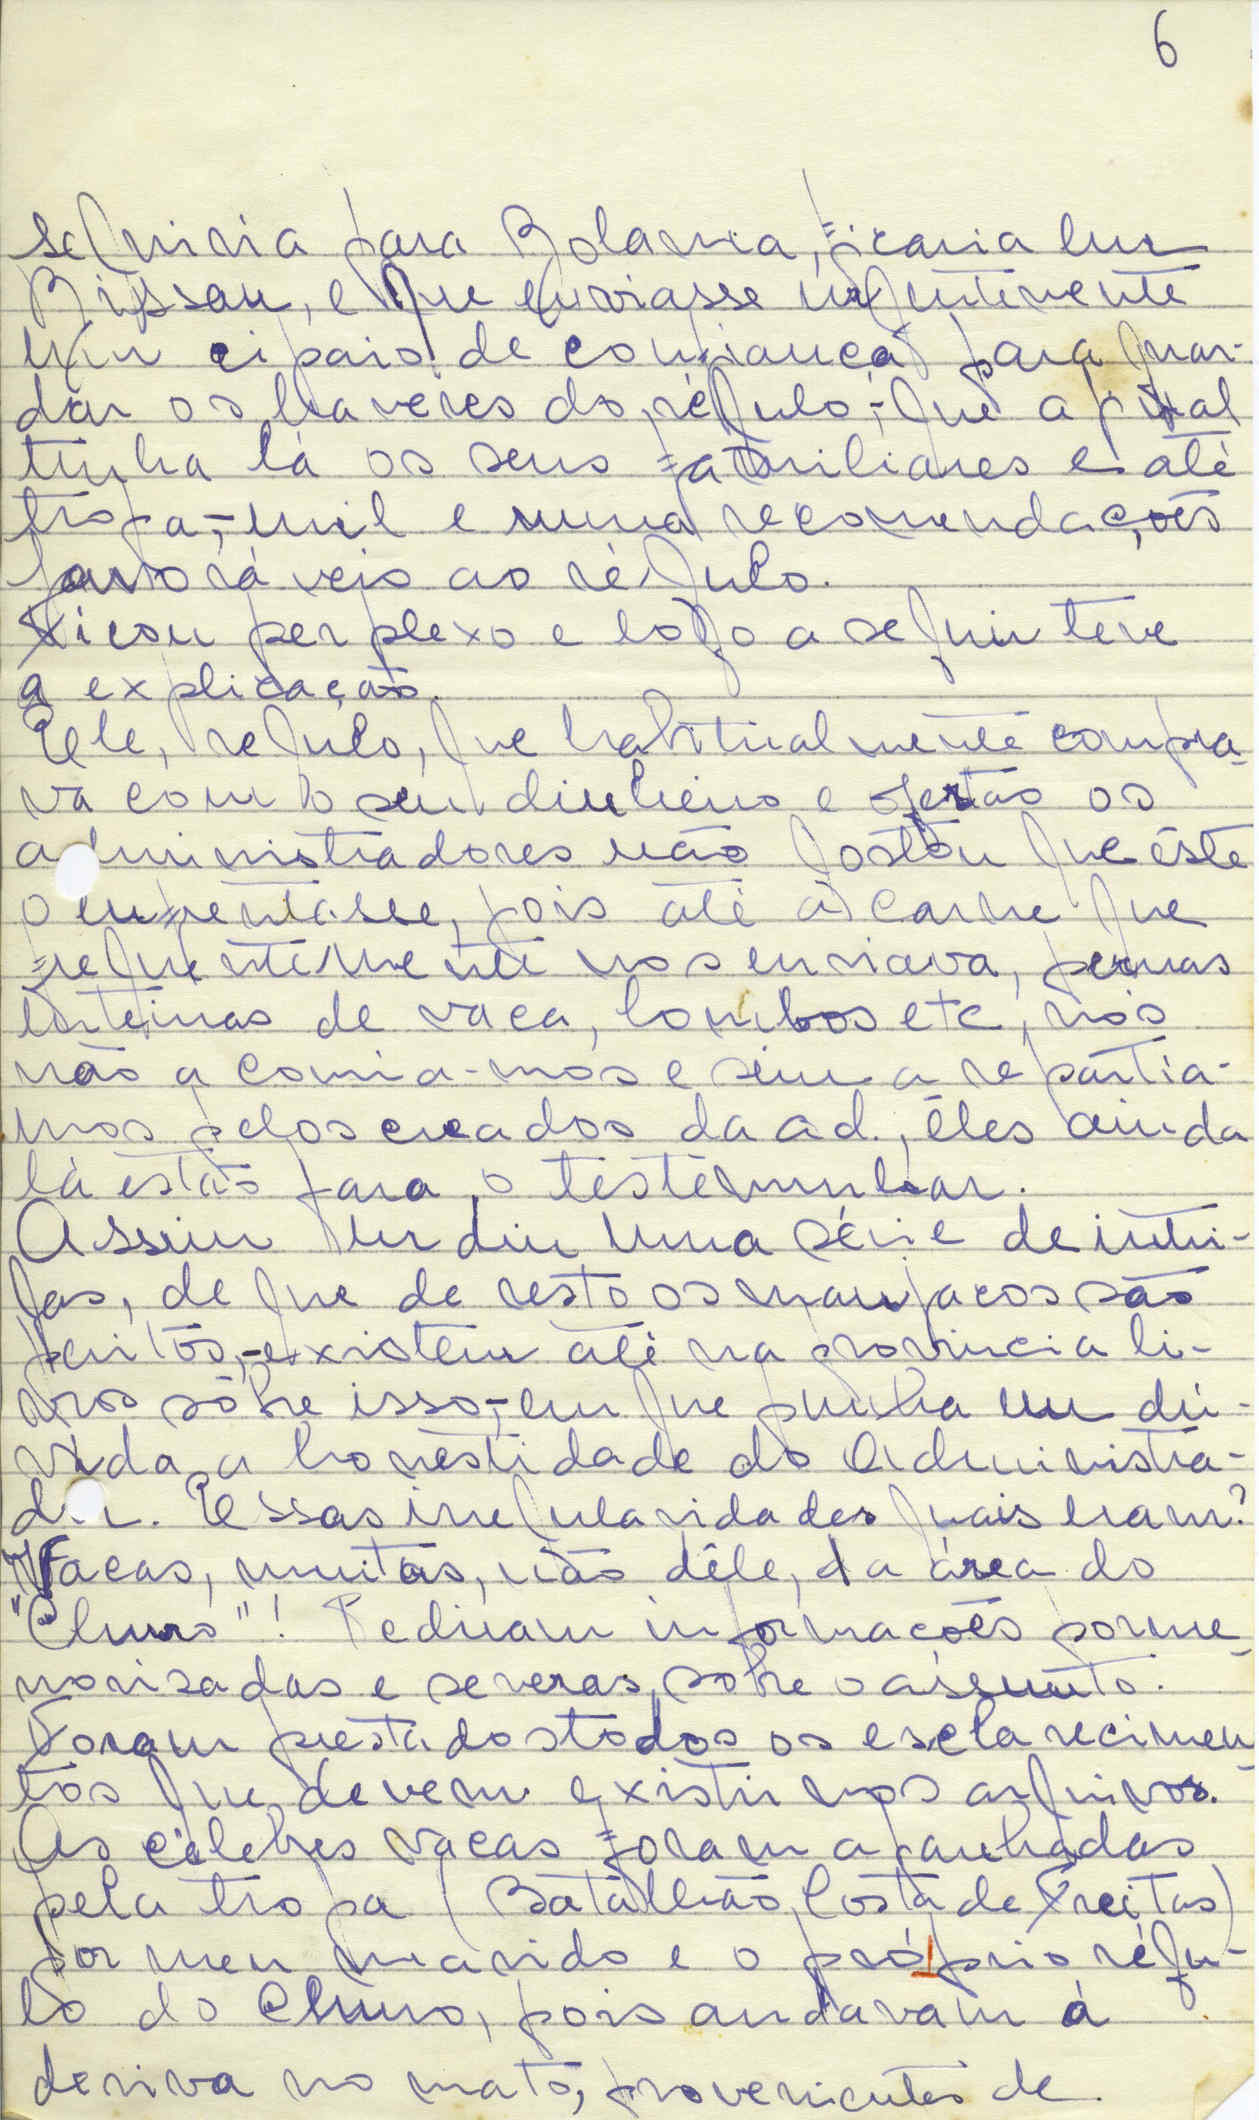 6
seguiria para Bolama, ficaria em
Bissau, e que enviasse urgentemente
um cipaio de confiança para guar-
dar os haveres do régulo,-que afinal
tinha lá os seus familiares e até
tropa,-mil e uma recomendações
favoráveis ao régulo.
Ficou perplexo e logo a seguir teve
a explicação.
Ele, regulo, que habitualmente compra-
va com o seu dinheiro e ofertas os
administradores não gostou que êste
o enfrentasse, pois até a carne que
frequentemente nos enviava, pernas
inteiras de vaca, lombos etc, nós
não a comia-mos e sim a repartia-
mos pelos creados da ad., êles ainda
lá estão para o testemunhar.
Assim urdiu uma série de intri-
gas, de que de resto os manjacos são
peritos,-existem até na provincia li-
vros sôbre isso,-em que punha em dú-
vida a honestidade do Administra-
dor. Essas irregularidades quais eram?
Vacas, muitas, não dêle, da área do
"Churo"! Pediram informações porme-
norisadas e severas sobre o assunto.
Foram prestados todos os esclarecimen-
tos que devem existir nos arquivos.
As célebres vacas foram apanhadas
pela tropa (Batalhão Costa de Freitas)
por meu marido e o próprio régu-
lo do Churo, pois andavam á
deriva no mato, provenientes de